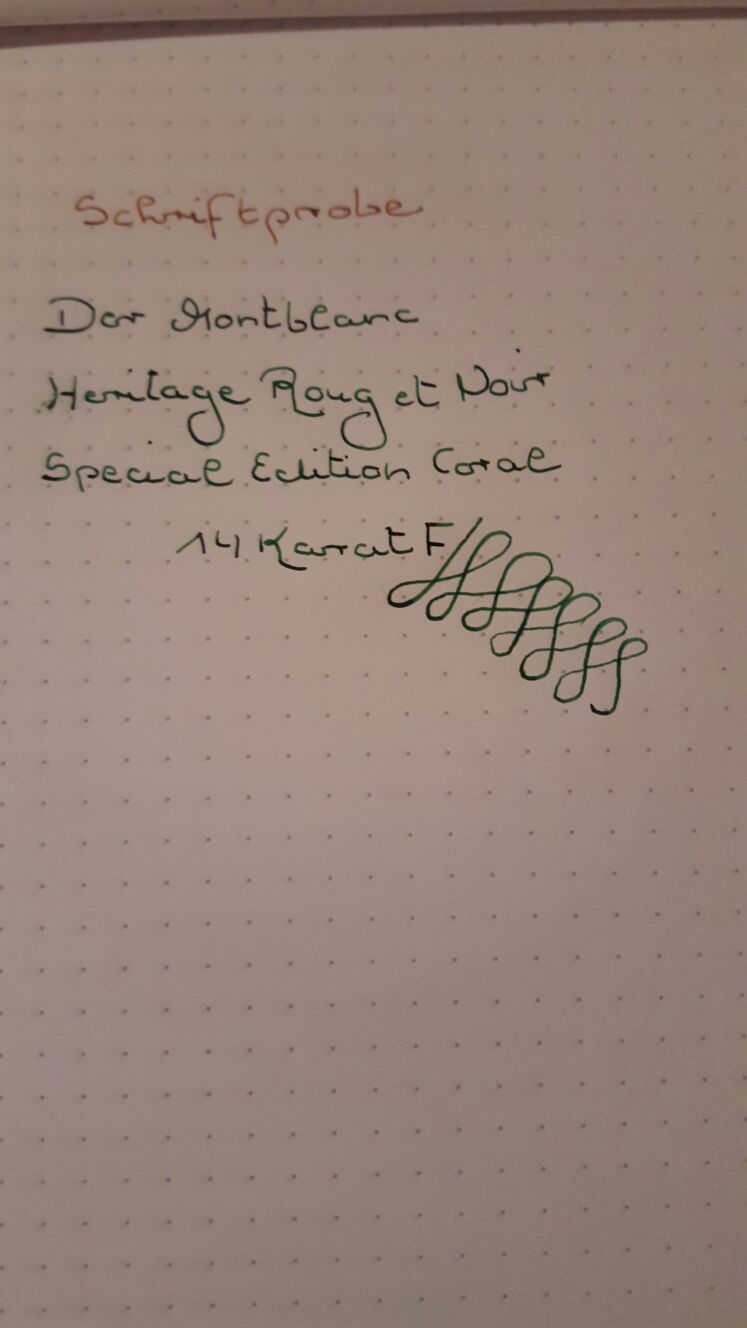 Schriftprobe
Der Montblanc
Heritage Roug et Noir
Special Edition Coral
14 Karat F